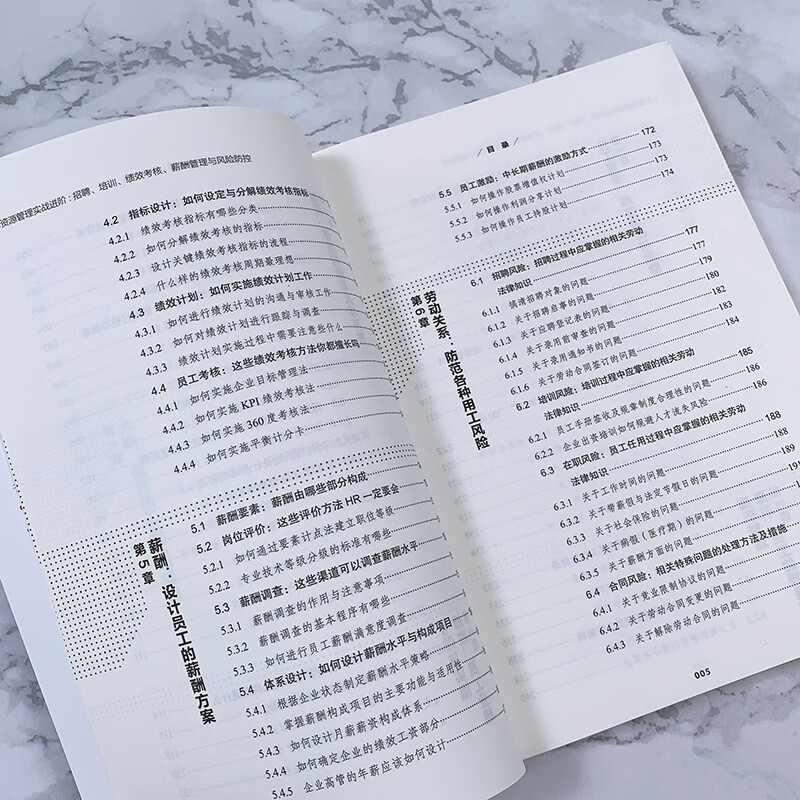 资源管理实战进阶：招聘、培训、绩效考核、薪酬管理与风险防控
4.2 指标设计：如何设定与分解绩效考核指标
4.2.1 绩效考核指标有哪些分类
4.2.2 如何分解绩效考核的指标
4.2.3 设计关键绩效考核指标的流程
4.2.4 什么样的绩效考核周期最理想
4.3 绩效计划：如何实施绩效计划工作
4.3.1 如何进行绩效计划的沟通与审核工作
4.3.2 如何对绩效计划进行跟踪与调查
4.3.3 绩效计划实施过程中需要注意些什么
4.4 员工考核：这些绩效考核方法你都擅长吗
4.4.1 如何实施企业目标管理法
4.4.2 如何实施KPI绩效考核法
4.4.3 如何实施360度考核法
4.4.4 如何实施平衡计分卡
第5章
薪酬：设计员工的薪酬方案
5.1 薪酬要素：薪酬由哪些部分构成
5.2 岗位评价：这些评价方法HR一定要会
5.2.1 如何通过要素计点法建立职位等级
5.2.2 专业技术等级分级的标准有哪些
5.3 薪酬调查：这些渠道可以调查薪酬水平
5.3.1 薪酬调查的作用与注意事项
5.3.2 薪酬调查的基本程序有哪些
5.3.3 如何进行员工薪酬满意度调查
5.4 体系设计：如何设计薪酬水平与构成项目
5.4.1 根据企业状态制定薪酬水平策略
5.4.2 掌握薪酬构成项目的主要功能与适用性
5.4.3 如何设计月薪薪资构成体系
5.4.4 如何确定企业的绩效工资部分
5.4.5 企业高管的年薪应该如何设计
目 录
5.5 员工激励：中长期薪酬的激励方式 172
5.5.1 如何操作股票增值权计划 173
5.5.2 如何操作利润分享计划 173
5.5.3 如何操作员工持股计划 174
第6章
劳动关系：防范各种用工风险
6.1 招聘风险：招聘过程中应掌握的相关劳动
法律知识 177
6.1.1 搞清招聘对象的问题 177
6.1.2 关于招聘启事的问题 179
6.1.3 关于应聘登记表的问题 180
6.1.4 关于录用前审查的问题 182
6.1.5 关于录用通知书的问题 183
6.1.6 关于劳动合同签订的问题 184
6.2 培训风险：培训过程中应掌握的相关劳动
法律知识 185
6.2.1 员工手册签收及规章制度合理性的问题 186
6.2.2 企业出资培训如何规避人才流失风险 186
6.3 在职风险：员工任用过程中应掌握的相关劳动
法律知识 188
6.3.1 关于工作时间的问题 188
6.3.2 关于带薪假与法定节假日的问题
6.3.3 关于社会保险的问题
6.3.4 关于病假（医疗期）的问题
6.3.5 关于薪酬方面的问题
6.4 合同风险：相关特殊问题的处理方法及措施
6.4.1 关于竞业限制协议的问题
6.4.2 关于劳动合同变更的问题
6.4.3 关于解除劳动合同的问题
005